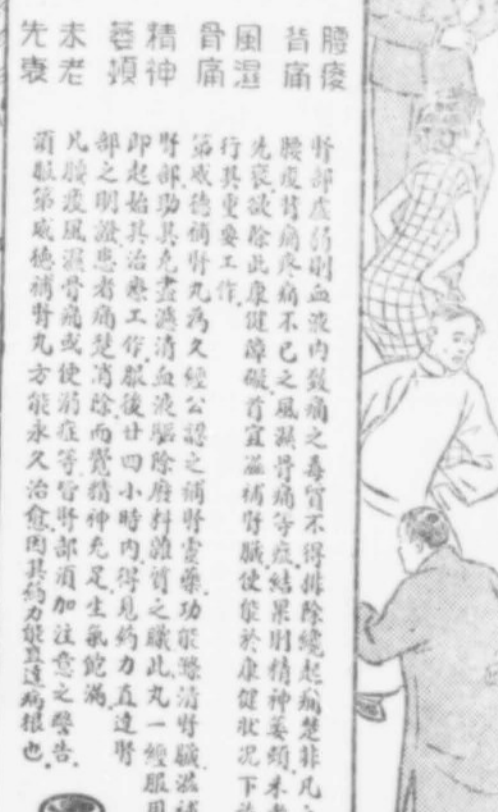 腰痠
背痛
風濕
骨痛
精神
萎頓
未老
先衰
腎部虛弱則血液內致痛之毒質不得排除纔起痛楚非凡
腰痠背痛疼痛不已之風濕骨痛等症.結果則精神萎頓.未老
先衰欲除此康健障礙.首宜滋補腎臟使能於康健狀況下
行其重要工作.
第威德補腎丸為久經公認之補腎靈藥.功能滌清腎臟.滋補
腎部.助其充盡濾清血液驅除廢料雜質之職.此丸一經服用
即起始其治療工作.服後廿四小時內.得見药力直達腎
部之明證.患者痛楚消除.而覺精神充足.生氣飽滿.
凡腰痠風濕骨痛或使溺症等.皆腎部須加注意之警告.
須服第威德補腎丸方能永久治愈.因其药力能直達病根也.